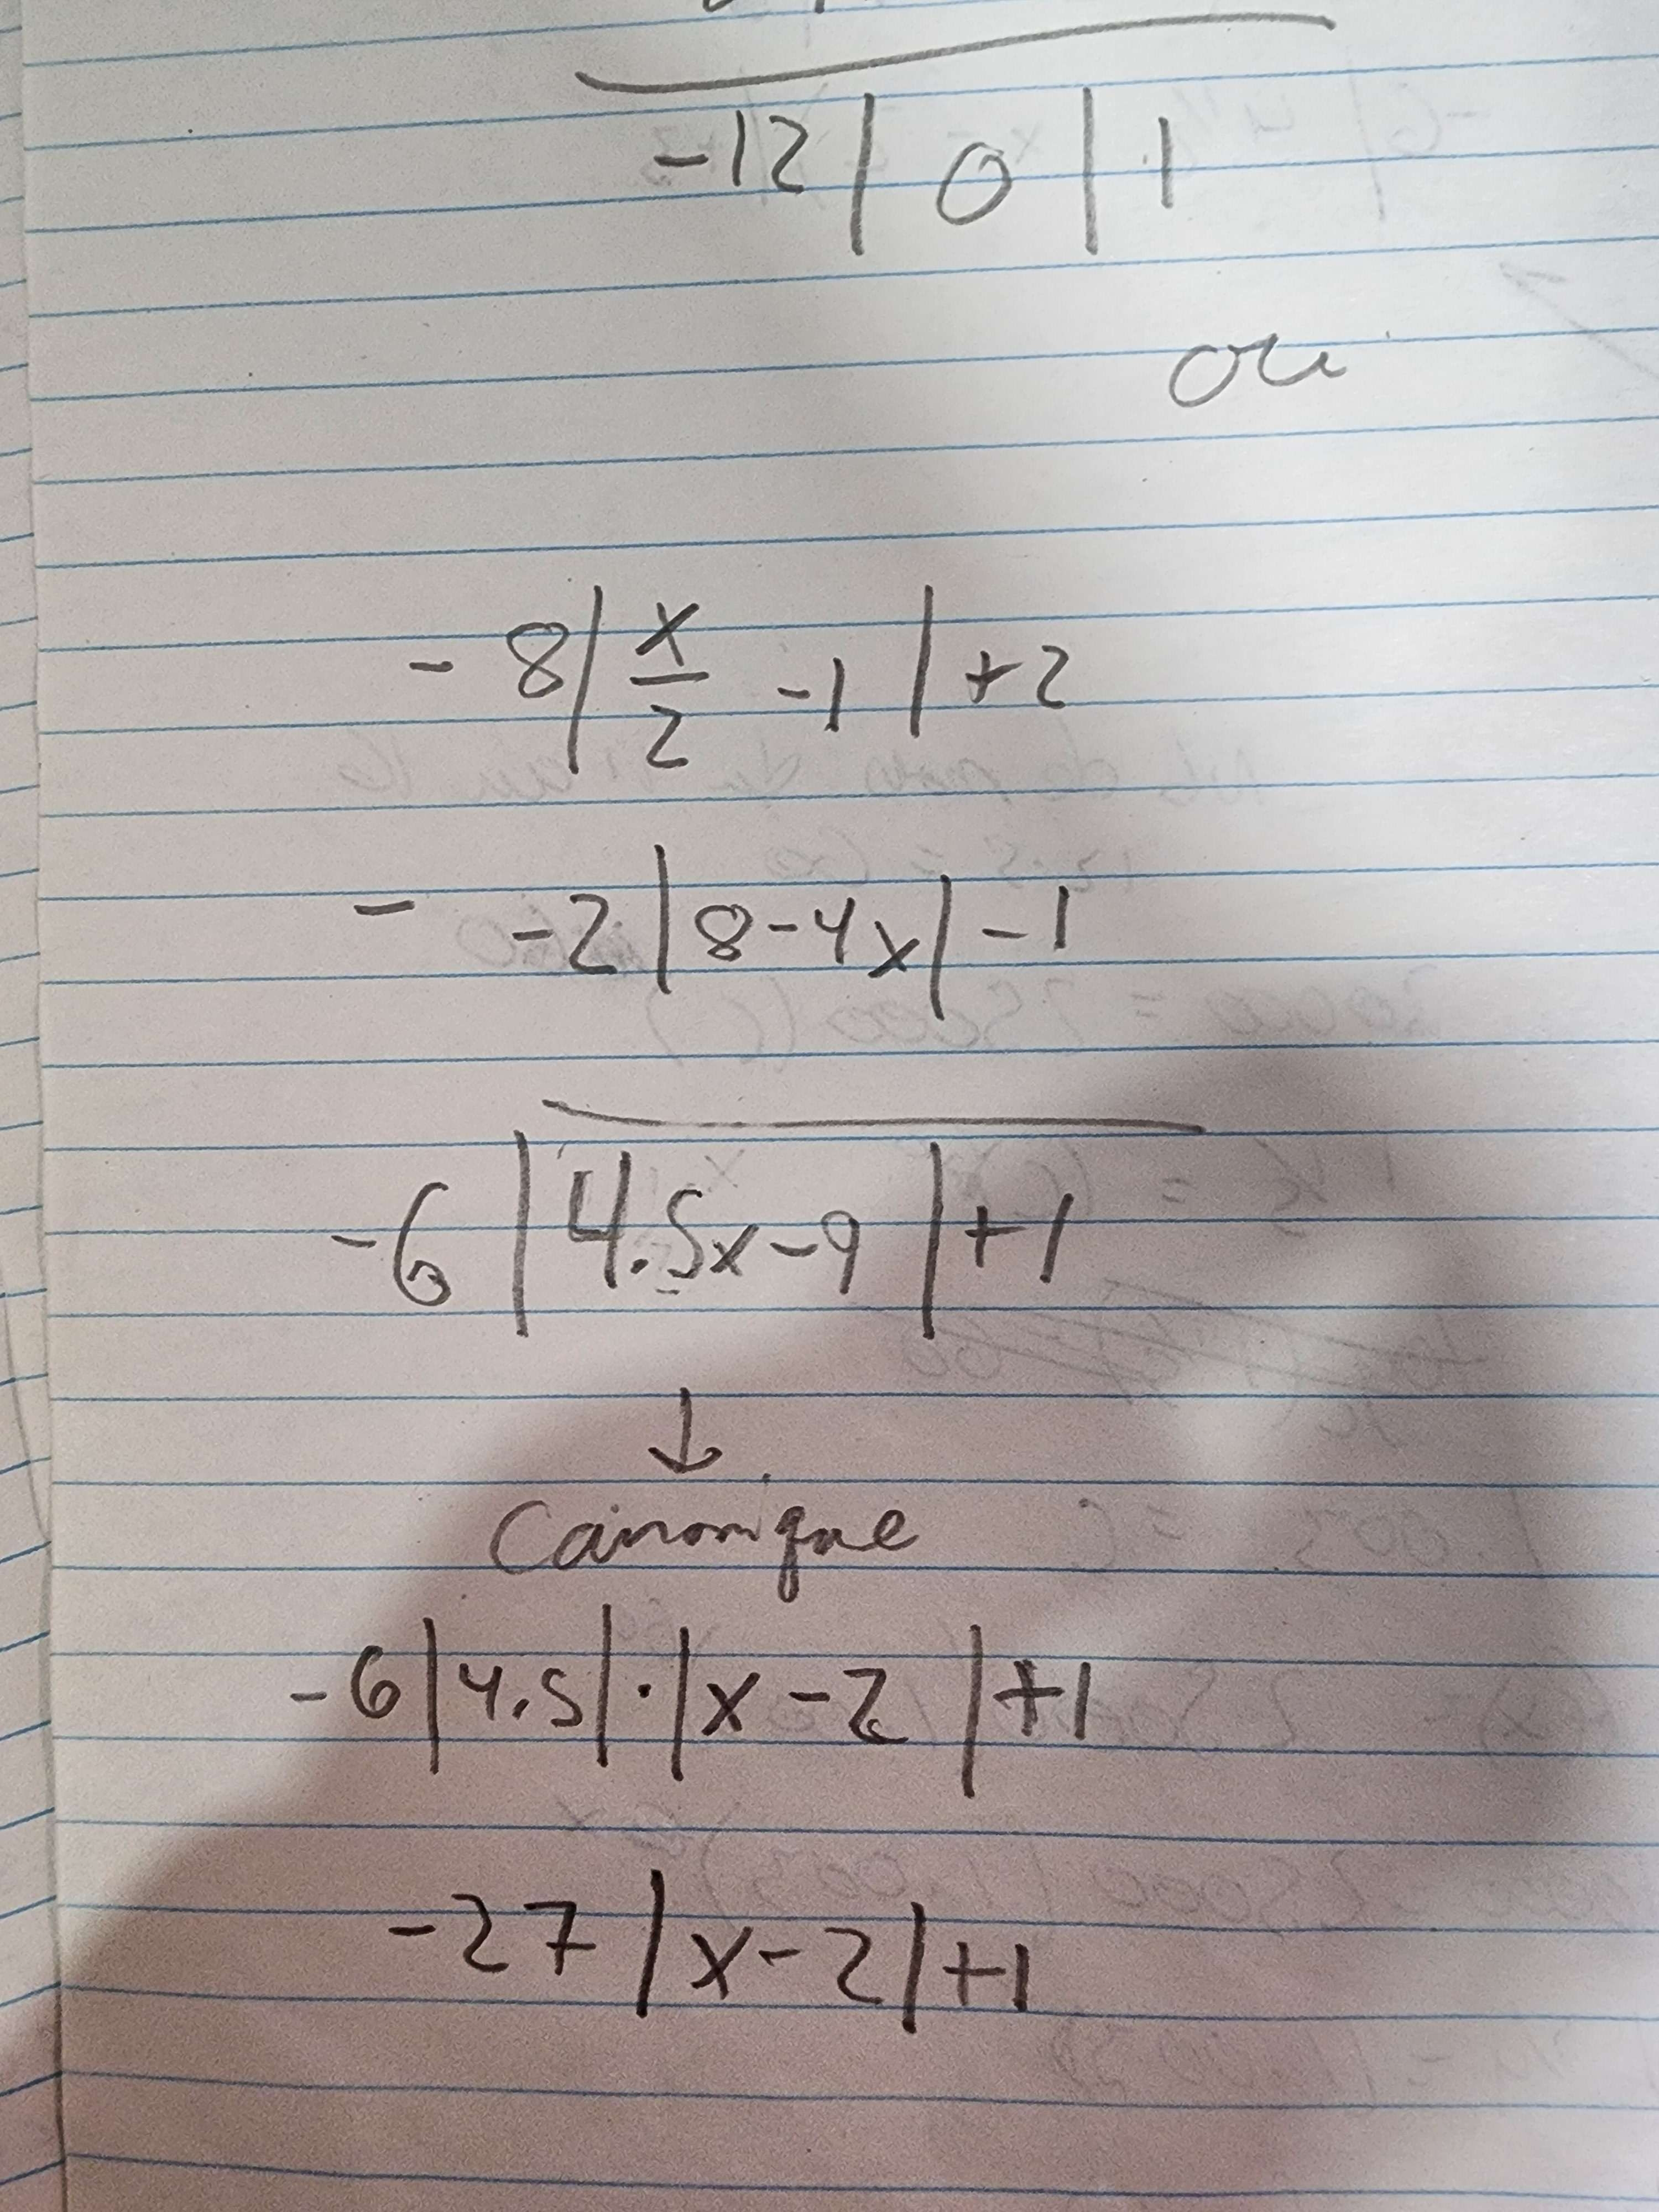 -12 | 0 | 1
ou
- 8 | x/2 - 1 | + 2
- -2 | 8 - 4x | - 1
-6 | 4.5x - 9 | + 1
↓
Canonique
-6 | 4.5 | · | x - 2 | + 1
-27 | x - 2 | + 1